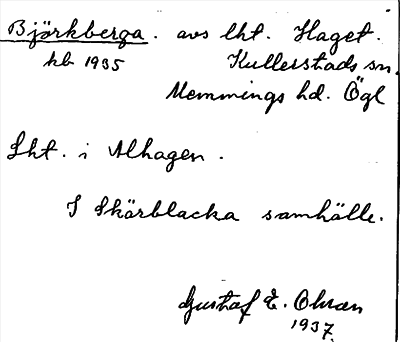 Björkberga. avs lht. Haget.
kb 1935 Kullerstads sn.
Memmings hd. Ögl
Lht. i Alhagen.
I Skärblacka samhälle.
Gustaf E. Ohran
1937.